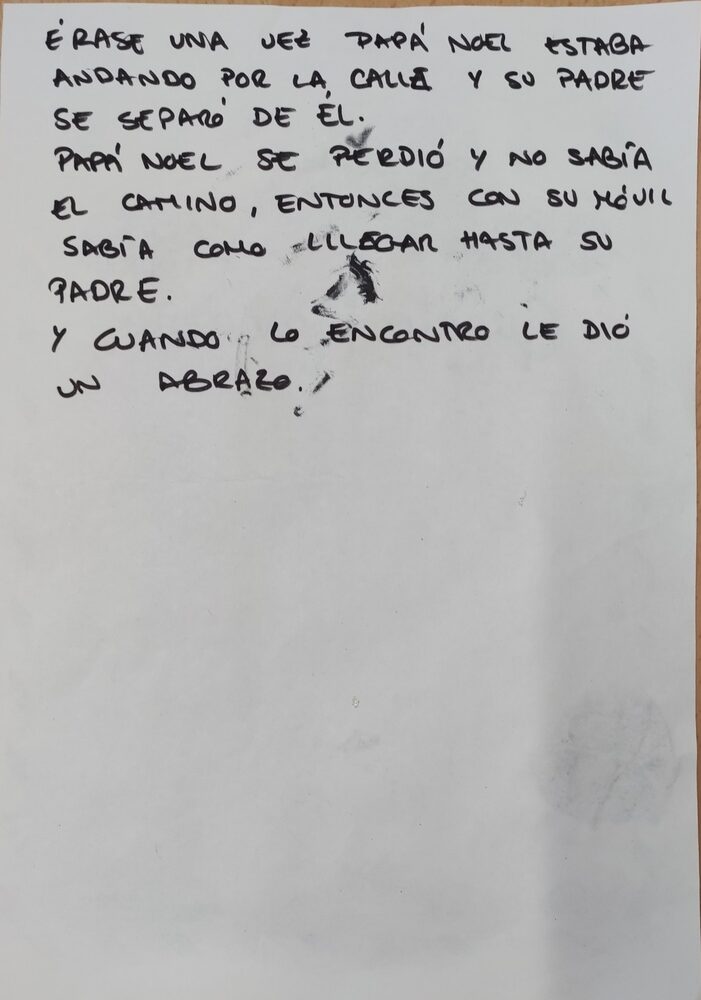 ÉRASE UNA VEZ PAPÁ NOEL ESTABA
ANDANDO POR LA CALLE Y SU PADRE
SE SEPARÓ DE ÉL.
PAPÁ NOEL SE PERDIÓ Y NO SABÍA
EL CAMINO, ENTONCES CON SU MÓVIL
SABÍA COMO LLLEGAR HASTA SU
PADRE.
Y CUANDO LO ENCONTRO LE DIÓ
UN ABRAZO.